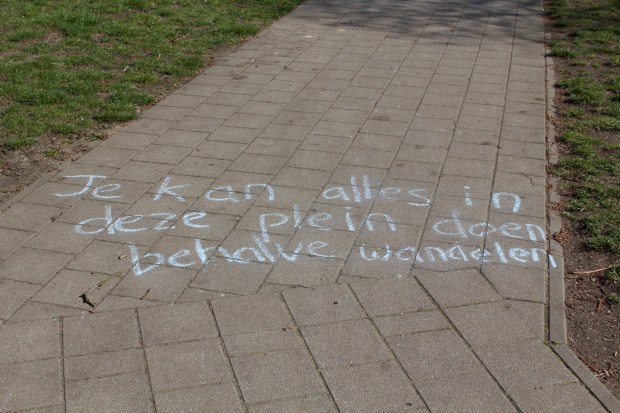 Je kan alles in
deze plein doen
behalve wandelen